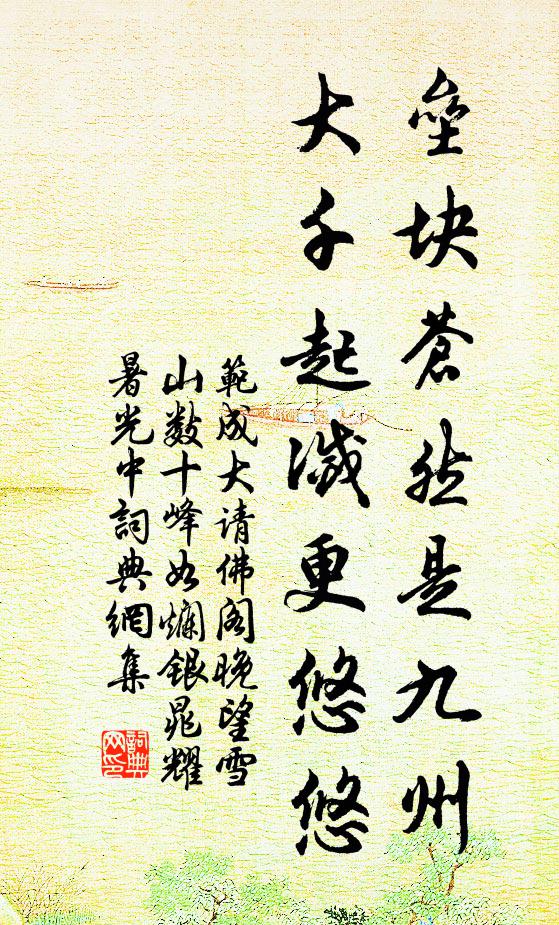 壘块蒼然是九州
大千起滅更悠悠
範成大请佛阁晚望雪
山数十峰如爛银晃耀
暑光中詞典網集
詞典
网印